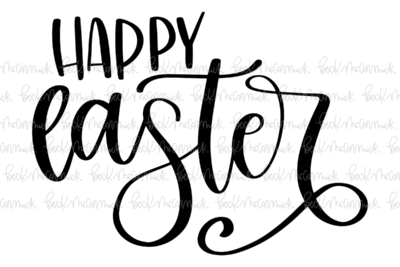 HAPPY
easter